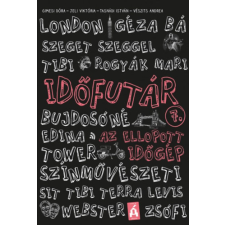 GIMESI DÓRA • JELI VIKTÓRIA • TASNÁDI ISTVÁN • VÉSZITS ANDREA
LONDON GÉZA BÁ
SZEGET SZEGGEL
TIBI ROGYÁK MARI
IDŐFUTÁR 7.
BUJDOSÓNÉ
EDINA AZ ELLOPOTT
TOWER IDŐGÉP
SZÍNMŰVÉSZETI
SIT TIBI TERRA LEVIS
WEBSTER Á ZSÓFI